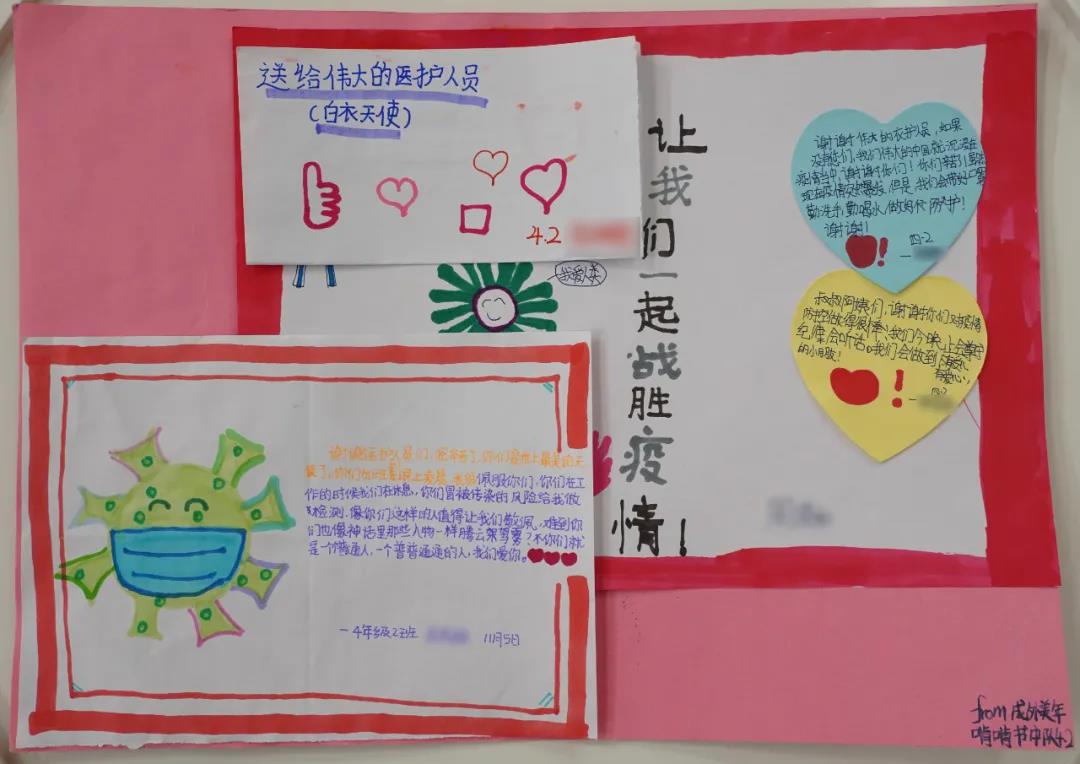 送给伟大的医护人员
(白衣天使)
4.2
我爱人类
让
我
们
一
起
战
胜
疫
情!
谢谢伟大的衣护人员,如果
没有您们,我们伟大的中国就沉浸在
疫情当中,谢谢你们!你们辛苦了!
现在疫情又爆发,但是,我们会带好口罩
勤洗手,勤喝水,做好代 防护!
谢谢!
四·2
叔叔阿姨们,谢谢你们对疫情
防控做得很棒,我们今晚上会遵守
纪律,会听话。我们会做到
的小目放!
有爱心,
四·2
谢谢医护人员们,您辛苦了,你们是世上最美的天
使了,你们 晚上 佩服你们,你们在工
作的时候我们在休息,你们冒被传染的风险给我做
检测,像你们这样的人值得让我们敬佩,难到你
们也像神话里那些人物一样腾云架雾?不你们就
是一个普通人,一个普普通通的人,我们爱你。
一4年级2班 11月5日
from 成外美年
啃啃书中队4.2